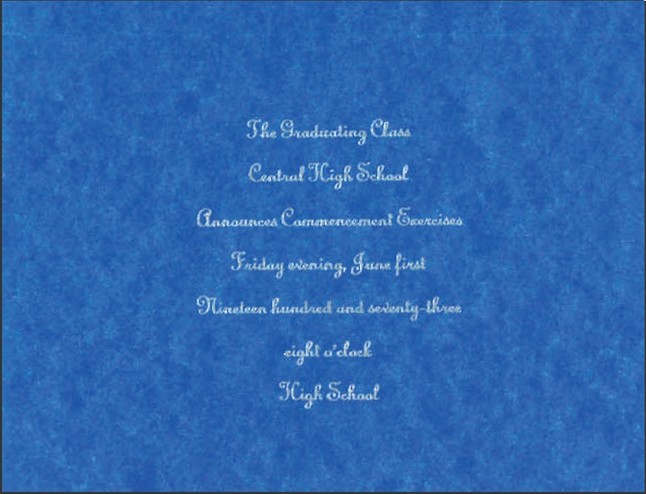 The Graduating Class
Central High School
Announces Commencement Exercises
Friday evening, June first
Nineteen hundred and seventy-three
eight o'clock
High School